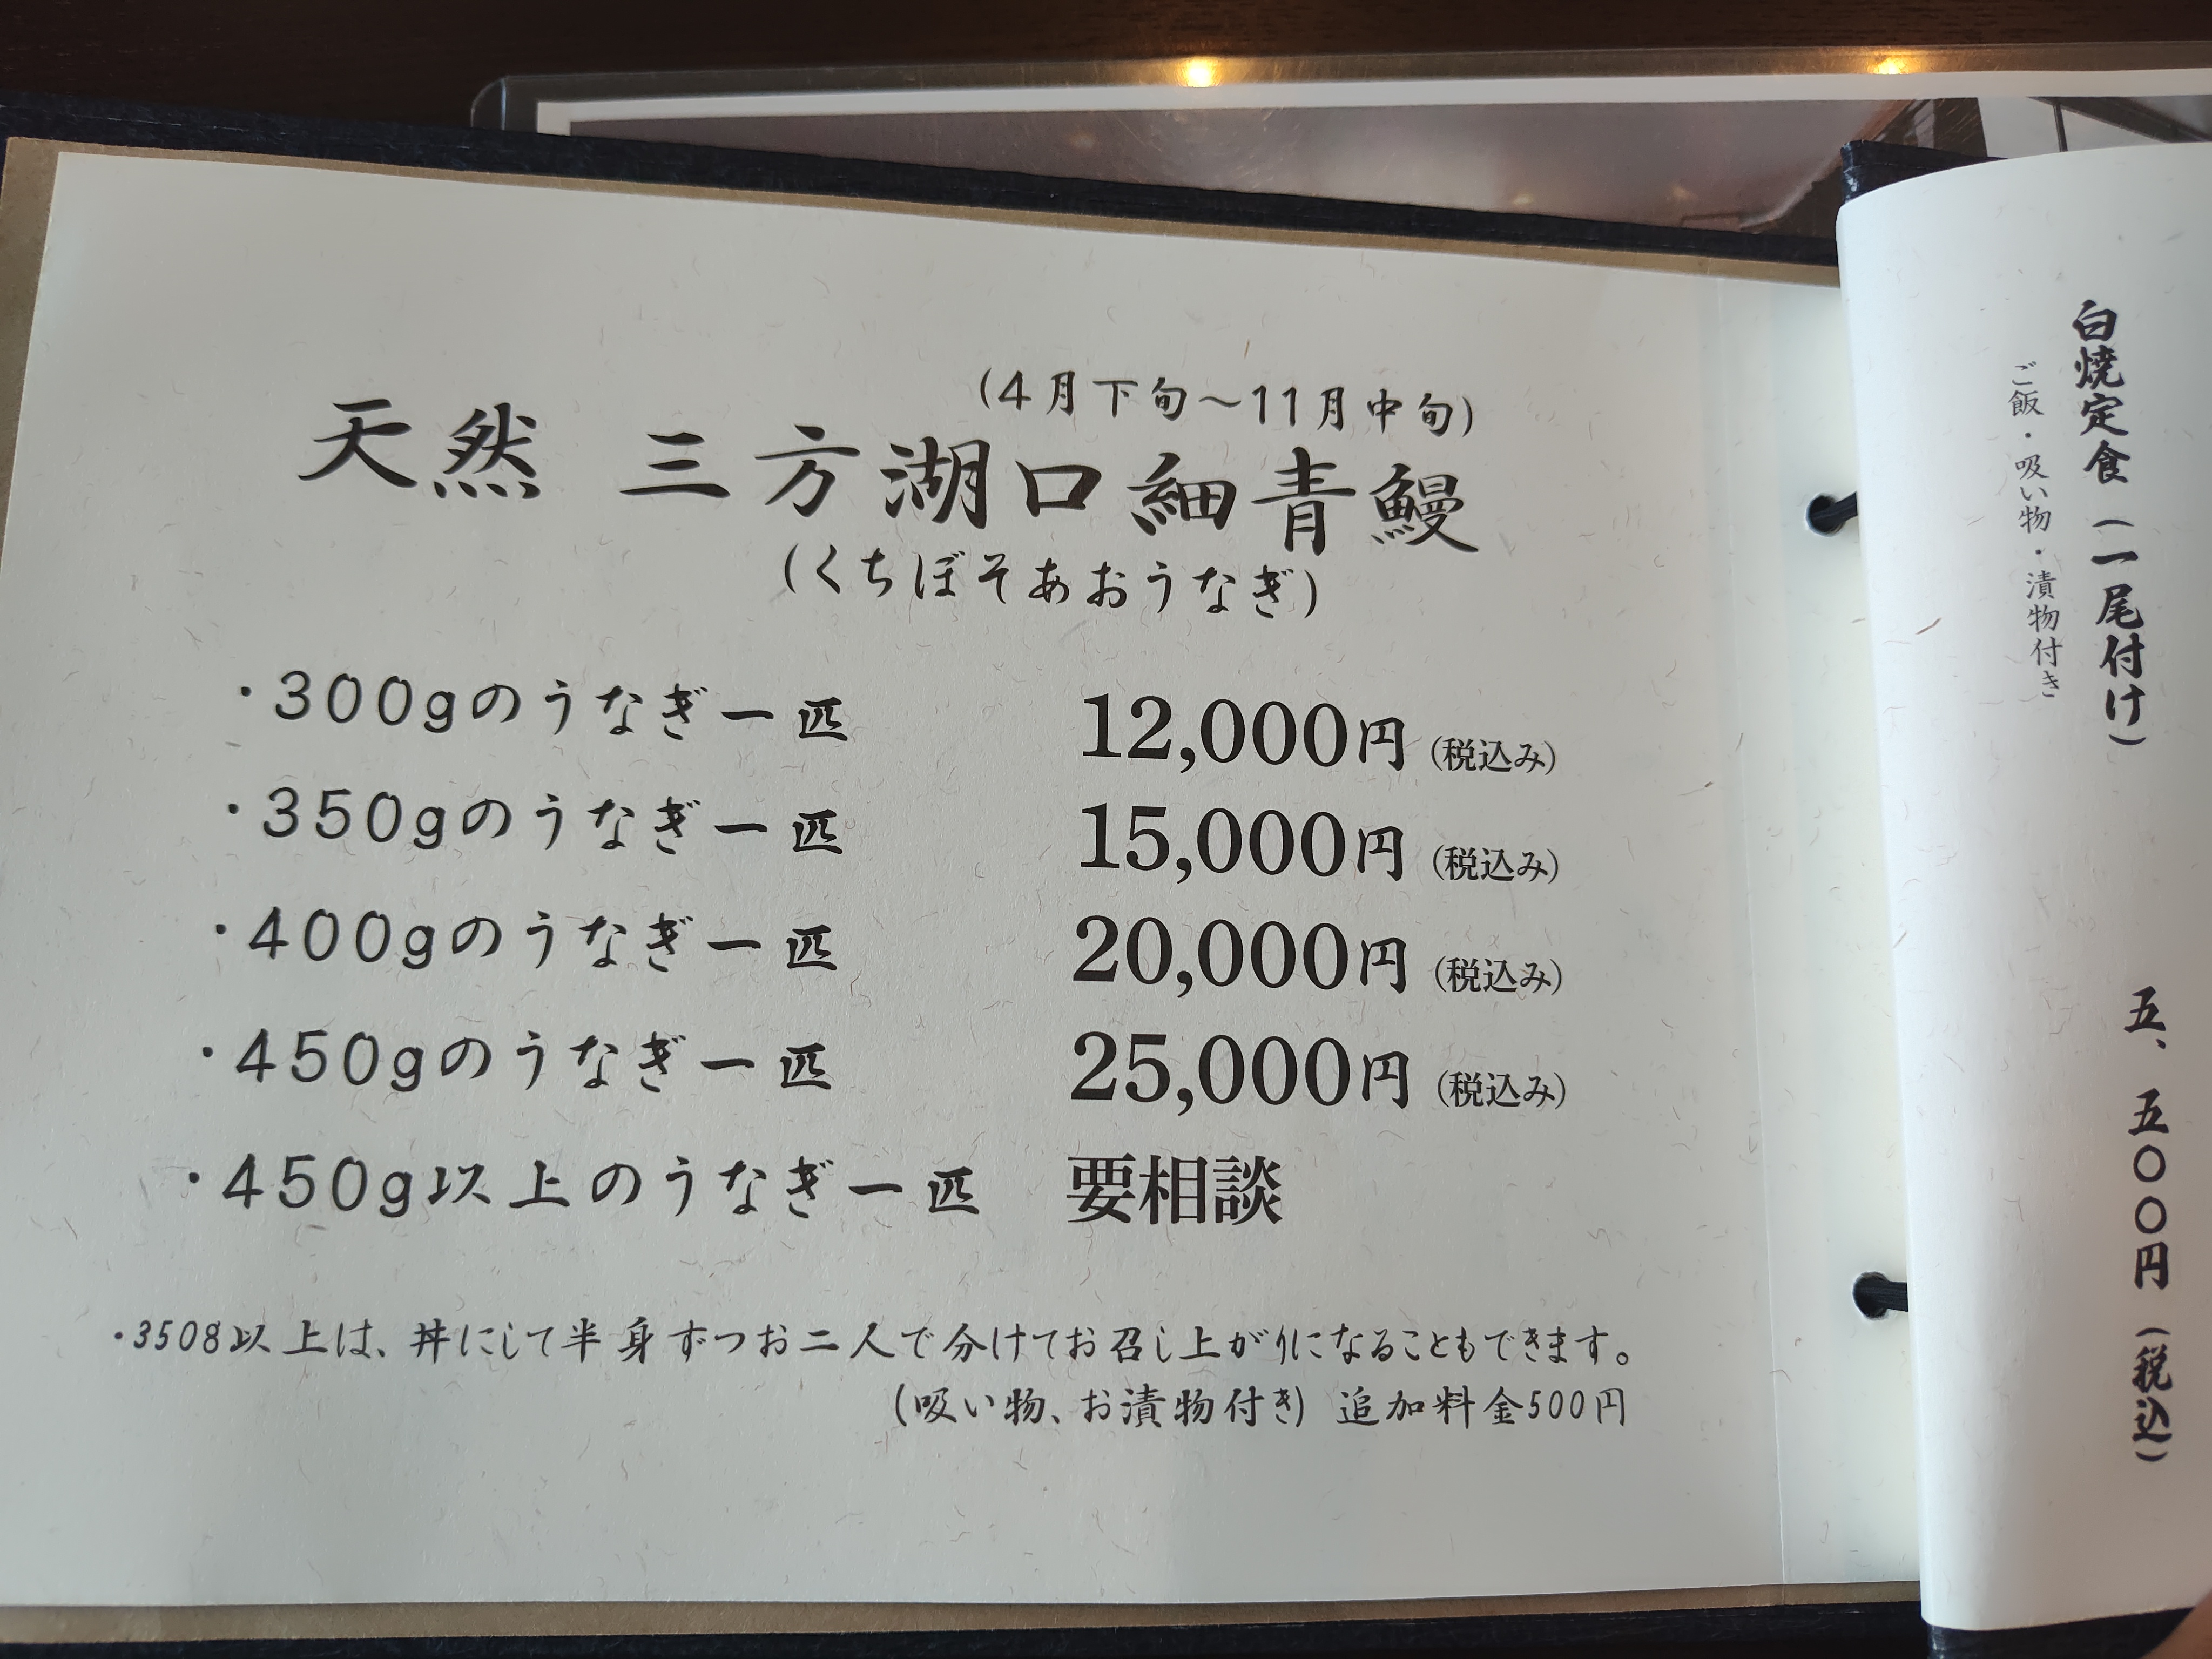 (4月下旬～11月中旬)
天然 三方湖口細青鰻
(くちぼそあおうなぎ)
・300gのうなぎ一匹 12,000円(税込み)
・350gのうなぎ一匹 15,000円(税込み)
・400gのうなぎ一匹 20,000円(税込み)
・450gのうなぎ一匹 25,000円(税込み)
・450g以上のうなぎ一匹 要相談
・3508以上は、丼にして半身ずつお二人で分けてお召し上がりになることもできます。
(吸い物、お漬物付き) 追加料金500円
白焼定食(一尾付け) 五、五〇〇円(税込)
ご飯・吸い物・漬物付き